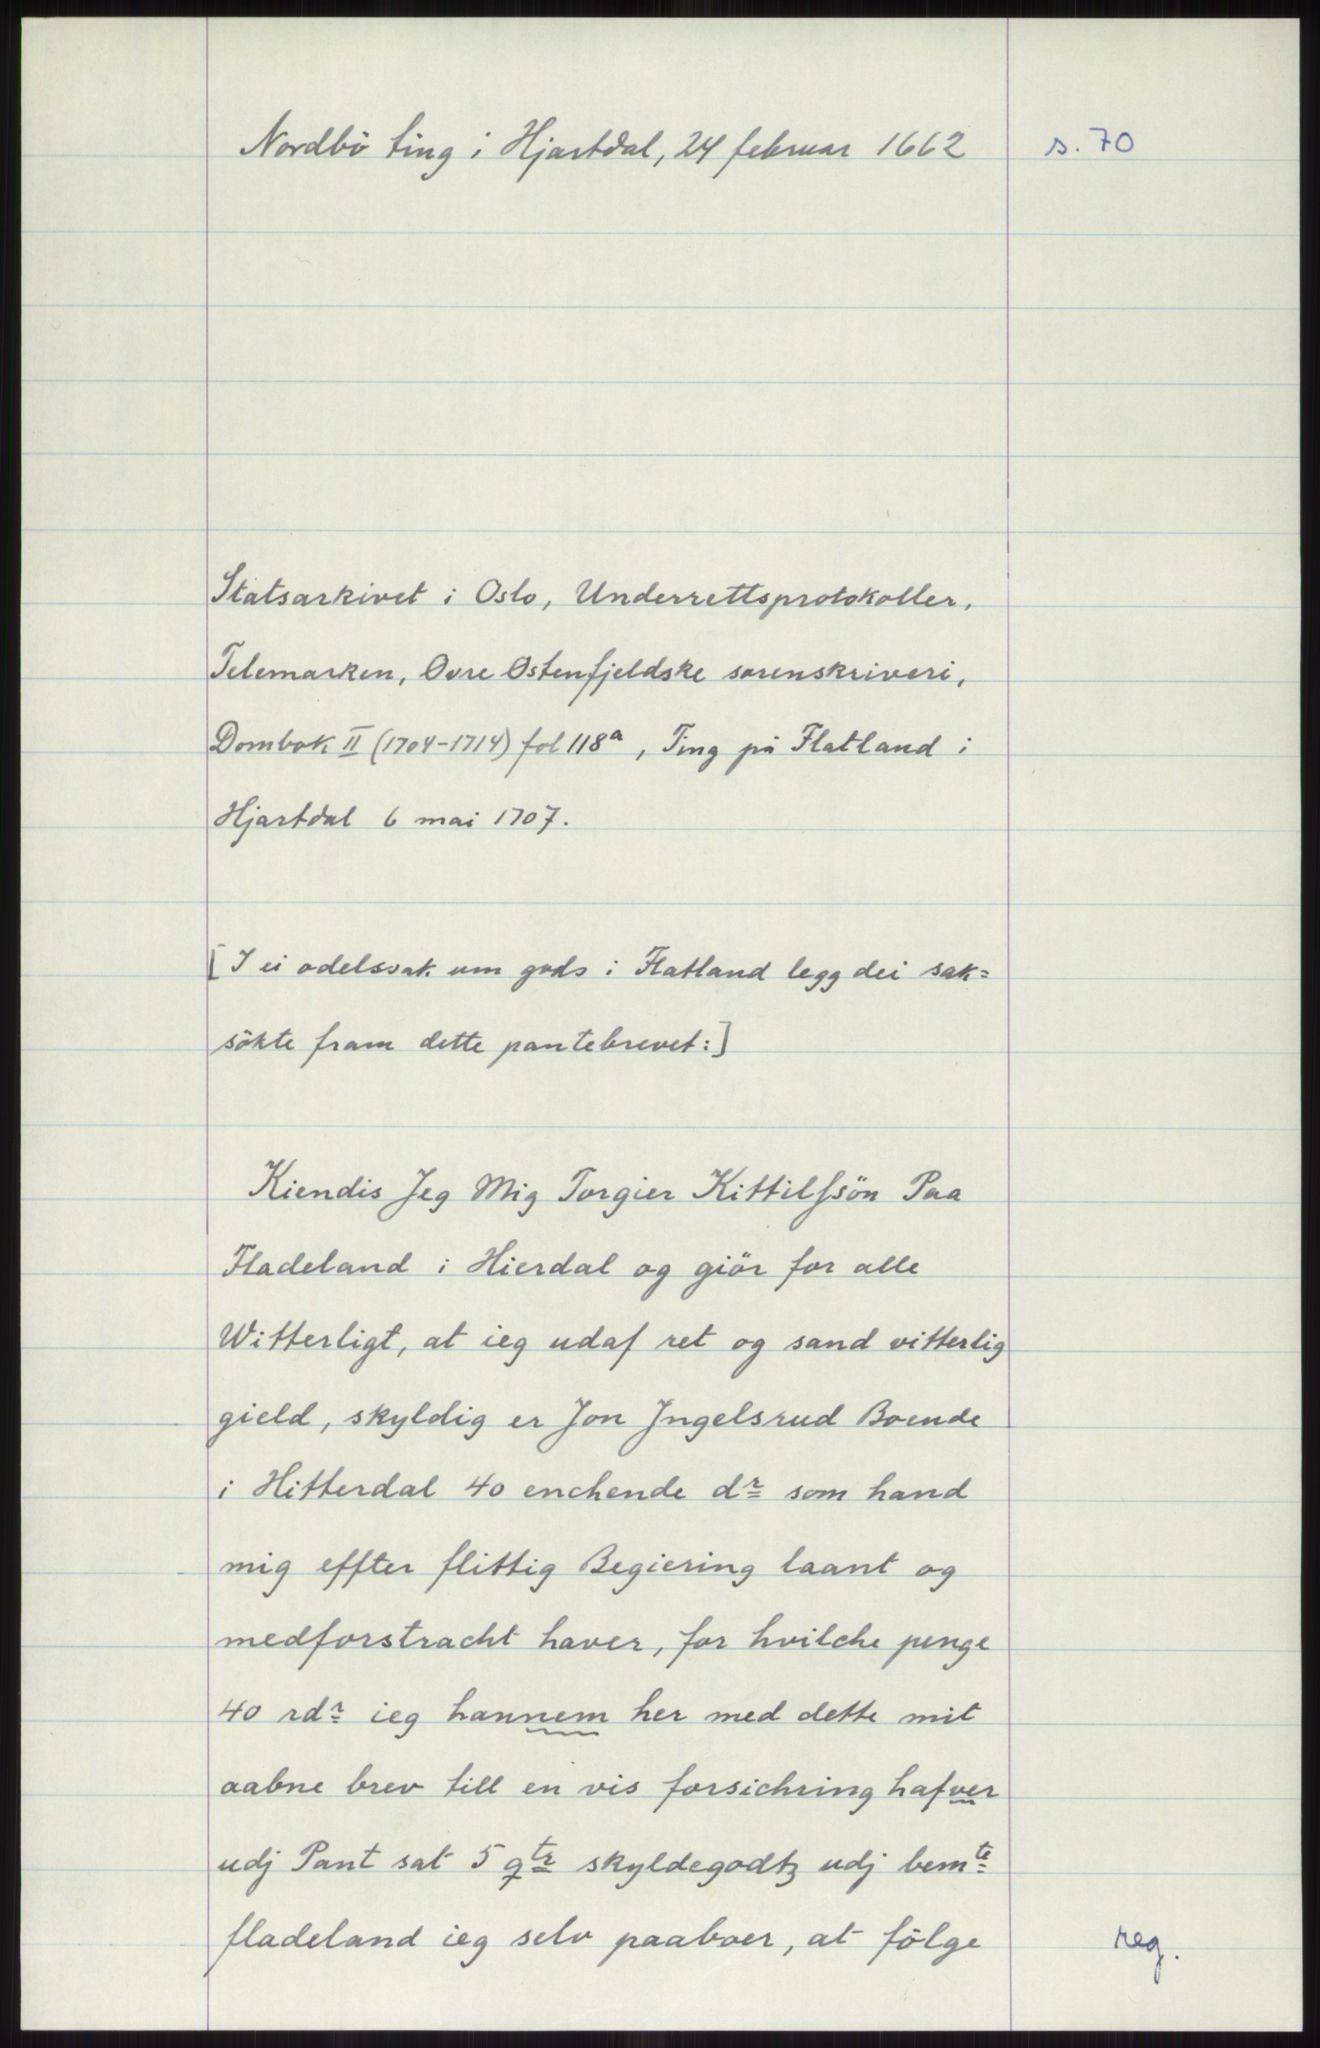 Nordbö ting i Hjartdal, 24 februar 1662 s. 70
Statsarkivet i Oslo, Underrettsprotokoller,
Telemarken, Øvre Østenfjeldske sorenskriveri,
Dombok II (1704-1714) fol 118a, Ting på Flatland i
Hjartdal 6 mai 1707.
[I ei odelssak um gods i Flatland legg dei sak=
sökte fram dette pantebrevet:]
Kiendis Jeg Mig Torgier Kittilssön Paa
Fladeland i Hierdal og giör for alle
Witterligt, at ieg udaf ret og sand vitterlig
gield, skyldig er Jon Jngelsrud Boende
i Hitterdal 40 enchende dr som hand
mig effter flittig Begiering laant og
medforstracht haver, for hvilche penge
40 rdr ieg hannem her med dette mit
aabne brev till en vis forsichring hafver
udj Pant sat 5 qtr skyldegodtz udj bemte
fladeland ieg selv paaboer, at fölge
reg.